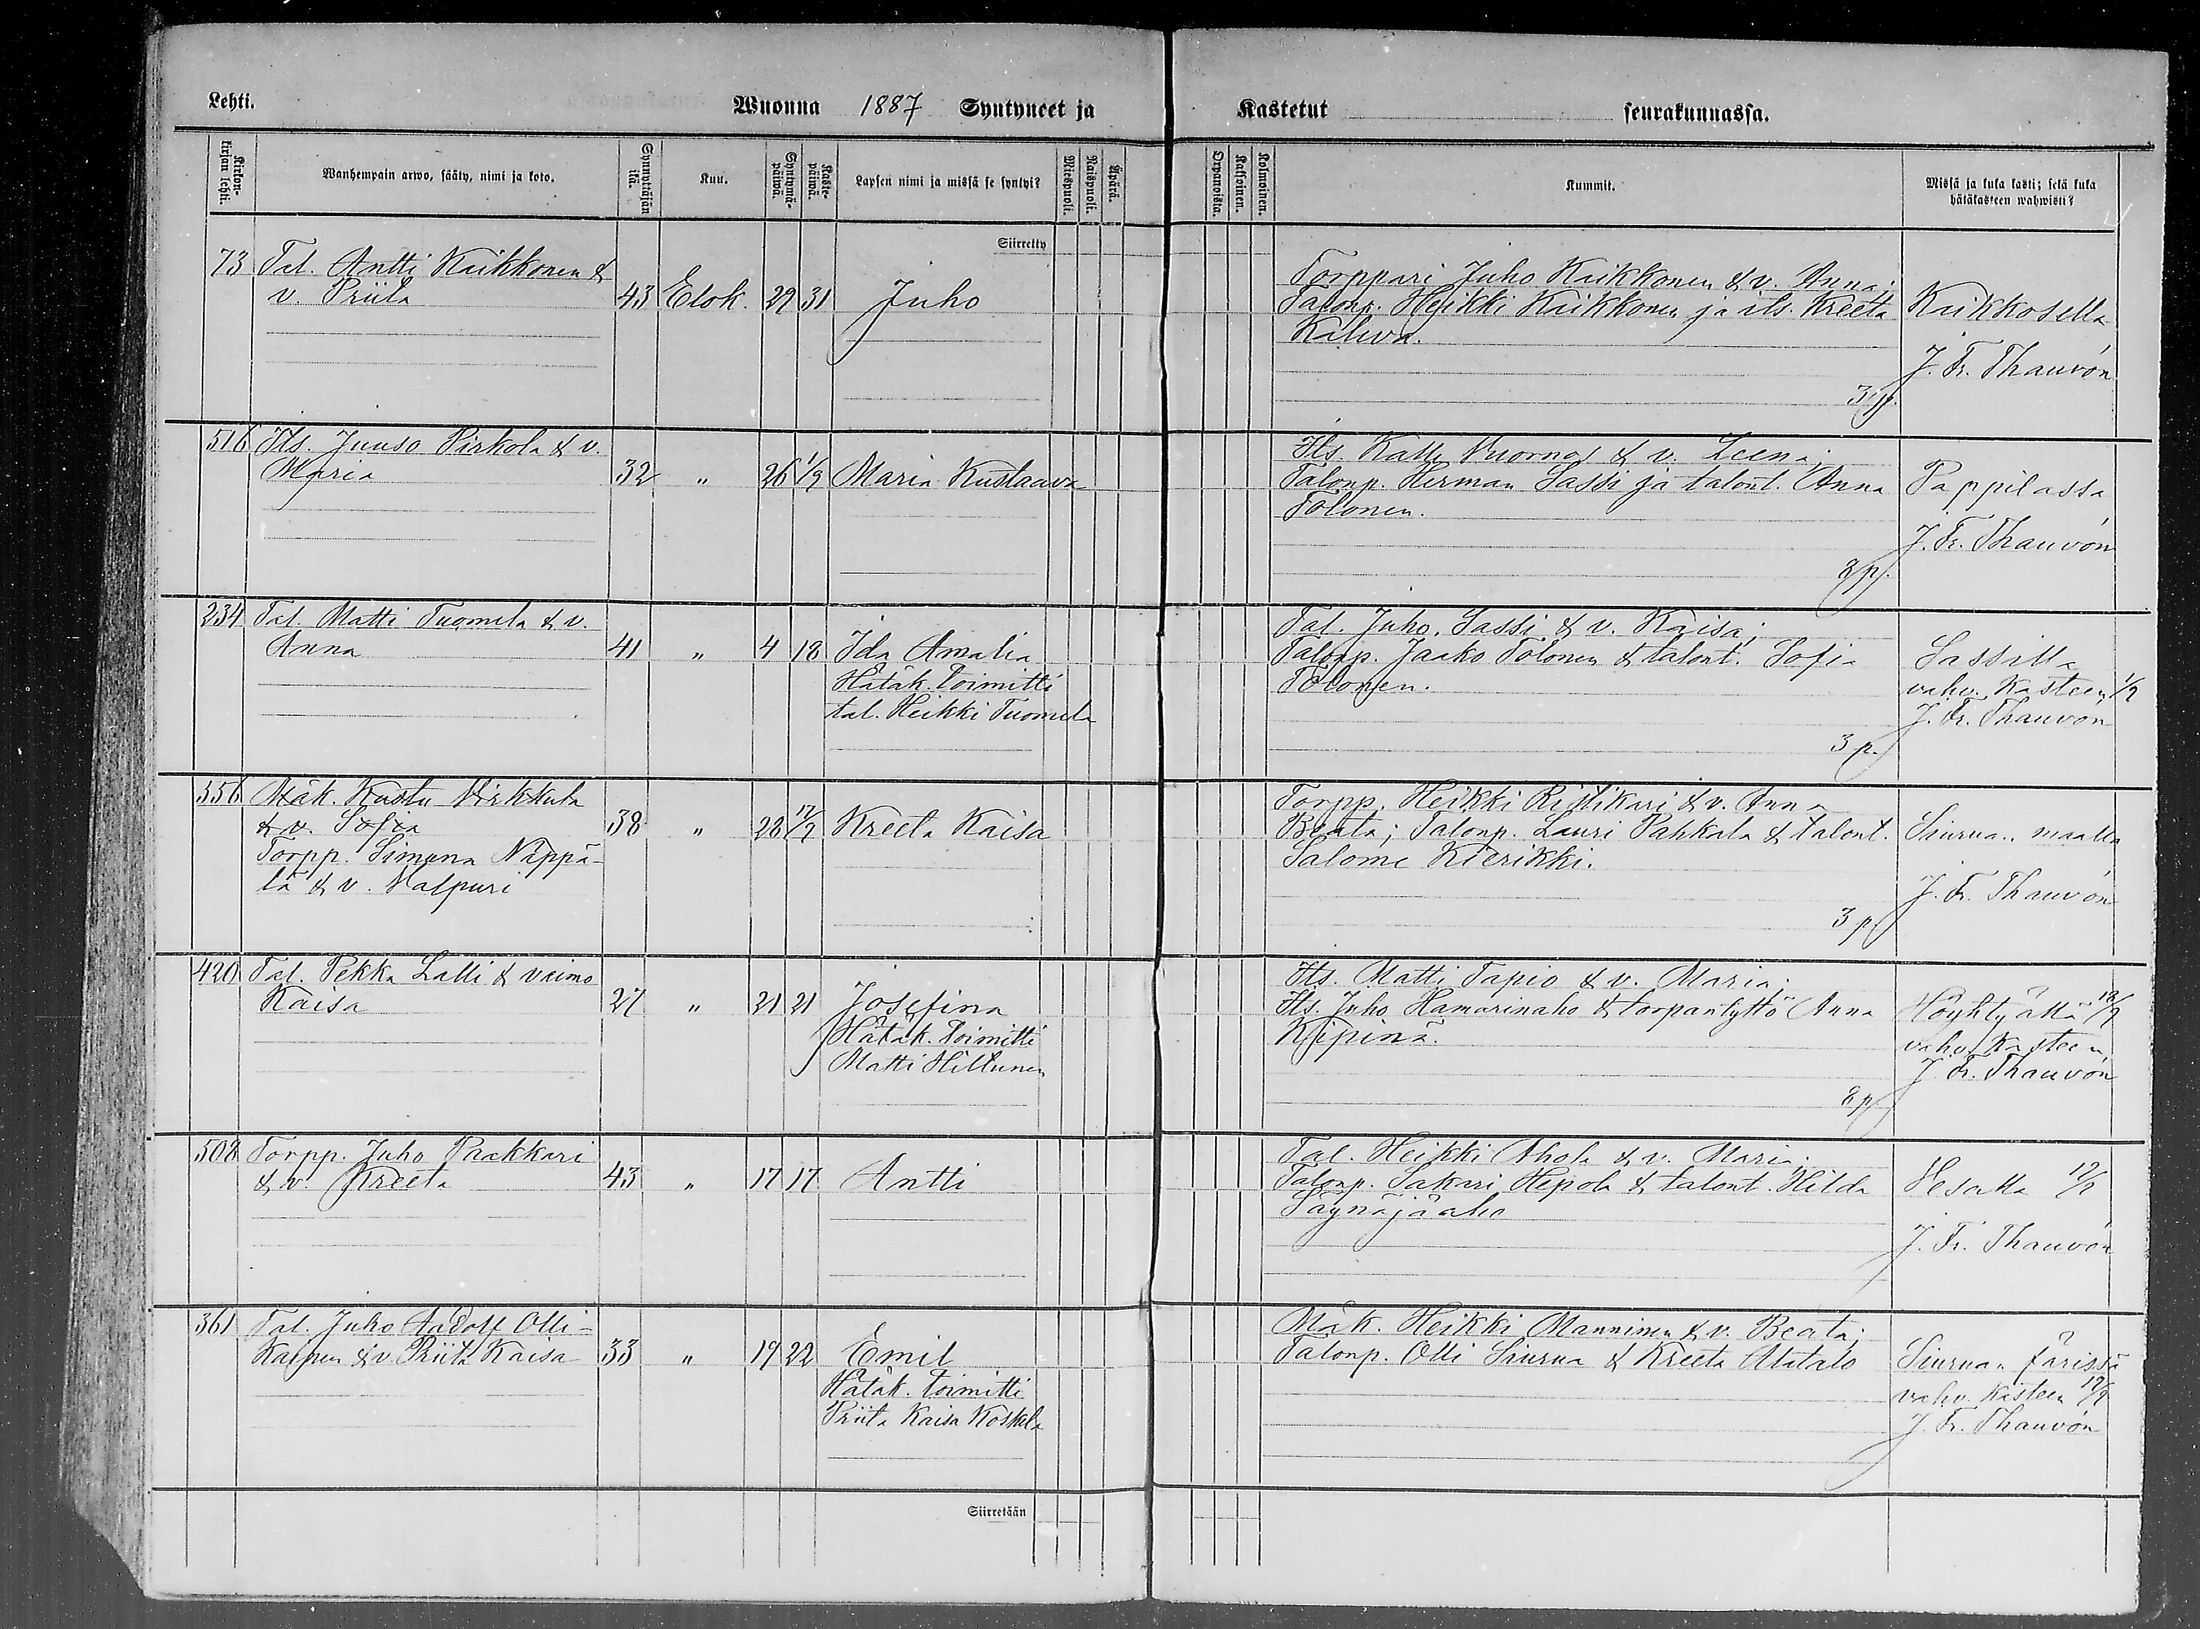 Lehti.
Wuonna 1887 Syntyneet ja
Kastetut seurakunnassa.
Ripin- kirjan lehti.
Wanhempain arwo, sääty, nimi ja koto.
Synnyttäjän ikä.
Kuu.
Syntymä- päiwä.
Kaste- päiwä.
Lapsen nimi ja missä se syntyi?
Miespuoli.
Naispuoli.
Äpärä.
Orpanoista.
Kaksoinen.
Kolmoinen.
Kummit.
Missä ja kuka kasti; sekä kuka hätäkasteen wahwisti?
Siirretty
73 Tal. Antti Kaikkonen &
v. Priita 43 Elok. 29 31 Juho
Torppari Juho Kaikkonen & v. Anna;
Talonp. Heikki Kaikkonen ja its. Kreeta
Kalwa.
3 p.
Kaikkosella
J. Fr. Thauvón
516 Its. Juuso Pirkola & v.
Maria 32 " 26 1/9 Maria Kustaava
Its. Kalle Vuorna & v. Leena;
Talonp. Herman Sassi ja talont. Anna
Tolonen.
8 p.
Pappilassa
J. Fr. Thauvón
234 Tal. Matti Tuomela & v.
Anna 41 " 4 18 Ida Amalia
Hätäk. toimitti
tal. Heikki Tuomela
Tal. Juho Sassi & v. Kaisa;
Talonp. Jaako Tolonen & talont. Sofia
Tolonen.
3 p.
Sassilla
vahv. kasteen 1/9
J. Fr. Thauvón
356 Mäk. Kustu Virkkula
& v. Sofia 38 " 28 12/9 Kreeta Kaisa
Torpp. Simuna Näppä-
lä & v. Valpuri
Torpp. Heikki Ristikari & v. Anna
Beata; Talonp. Lauri Pahkala & talont.
Salome Kierikki.
3 p.
Siurua. maalla
J. Fr. Thauvón
420 Tal. Pekka Lalli & vaimo
Kaisa 27 " 21 21 Josefina
Hätäk. toimitti
Matti Hiltunen
Its. Matti Tapio & v. Maria;
Its. Juho Hamarinaho & torpantyttö Anna
Kipinä.
8 p.
Höyhtyällä
vahv. kasteen
J. Fr. Thauvón
508 Torpp. Juho Paakkari
& v. Kreeta 43 " 17 17 Antti
Tal. Heikki Ahola & v. Maria;
Talonp. Sakari Hepola & talont. Hilda
Säynäjäaho
Vesalla
J. Fr. Thauvón
361 Tal. Juho Aadolf Olli-
kainen & v. Priita Kaisa 33 " 19 22 Emil
Hätäk. toimitti
Priita Kaisa Koskela
Mäk. Heikki Manninen & v. Beata;
Talonp. Olli Siurua & Kreeta Alatalo
Siurua.
vahv. kasteen
J. Fr. Thauvón
Siirretään